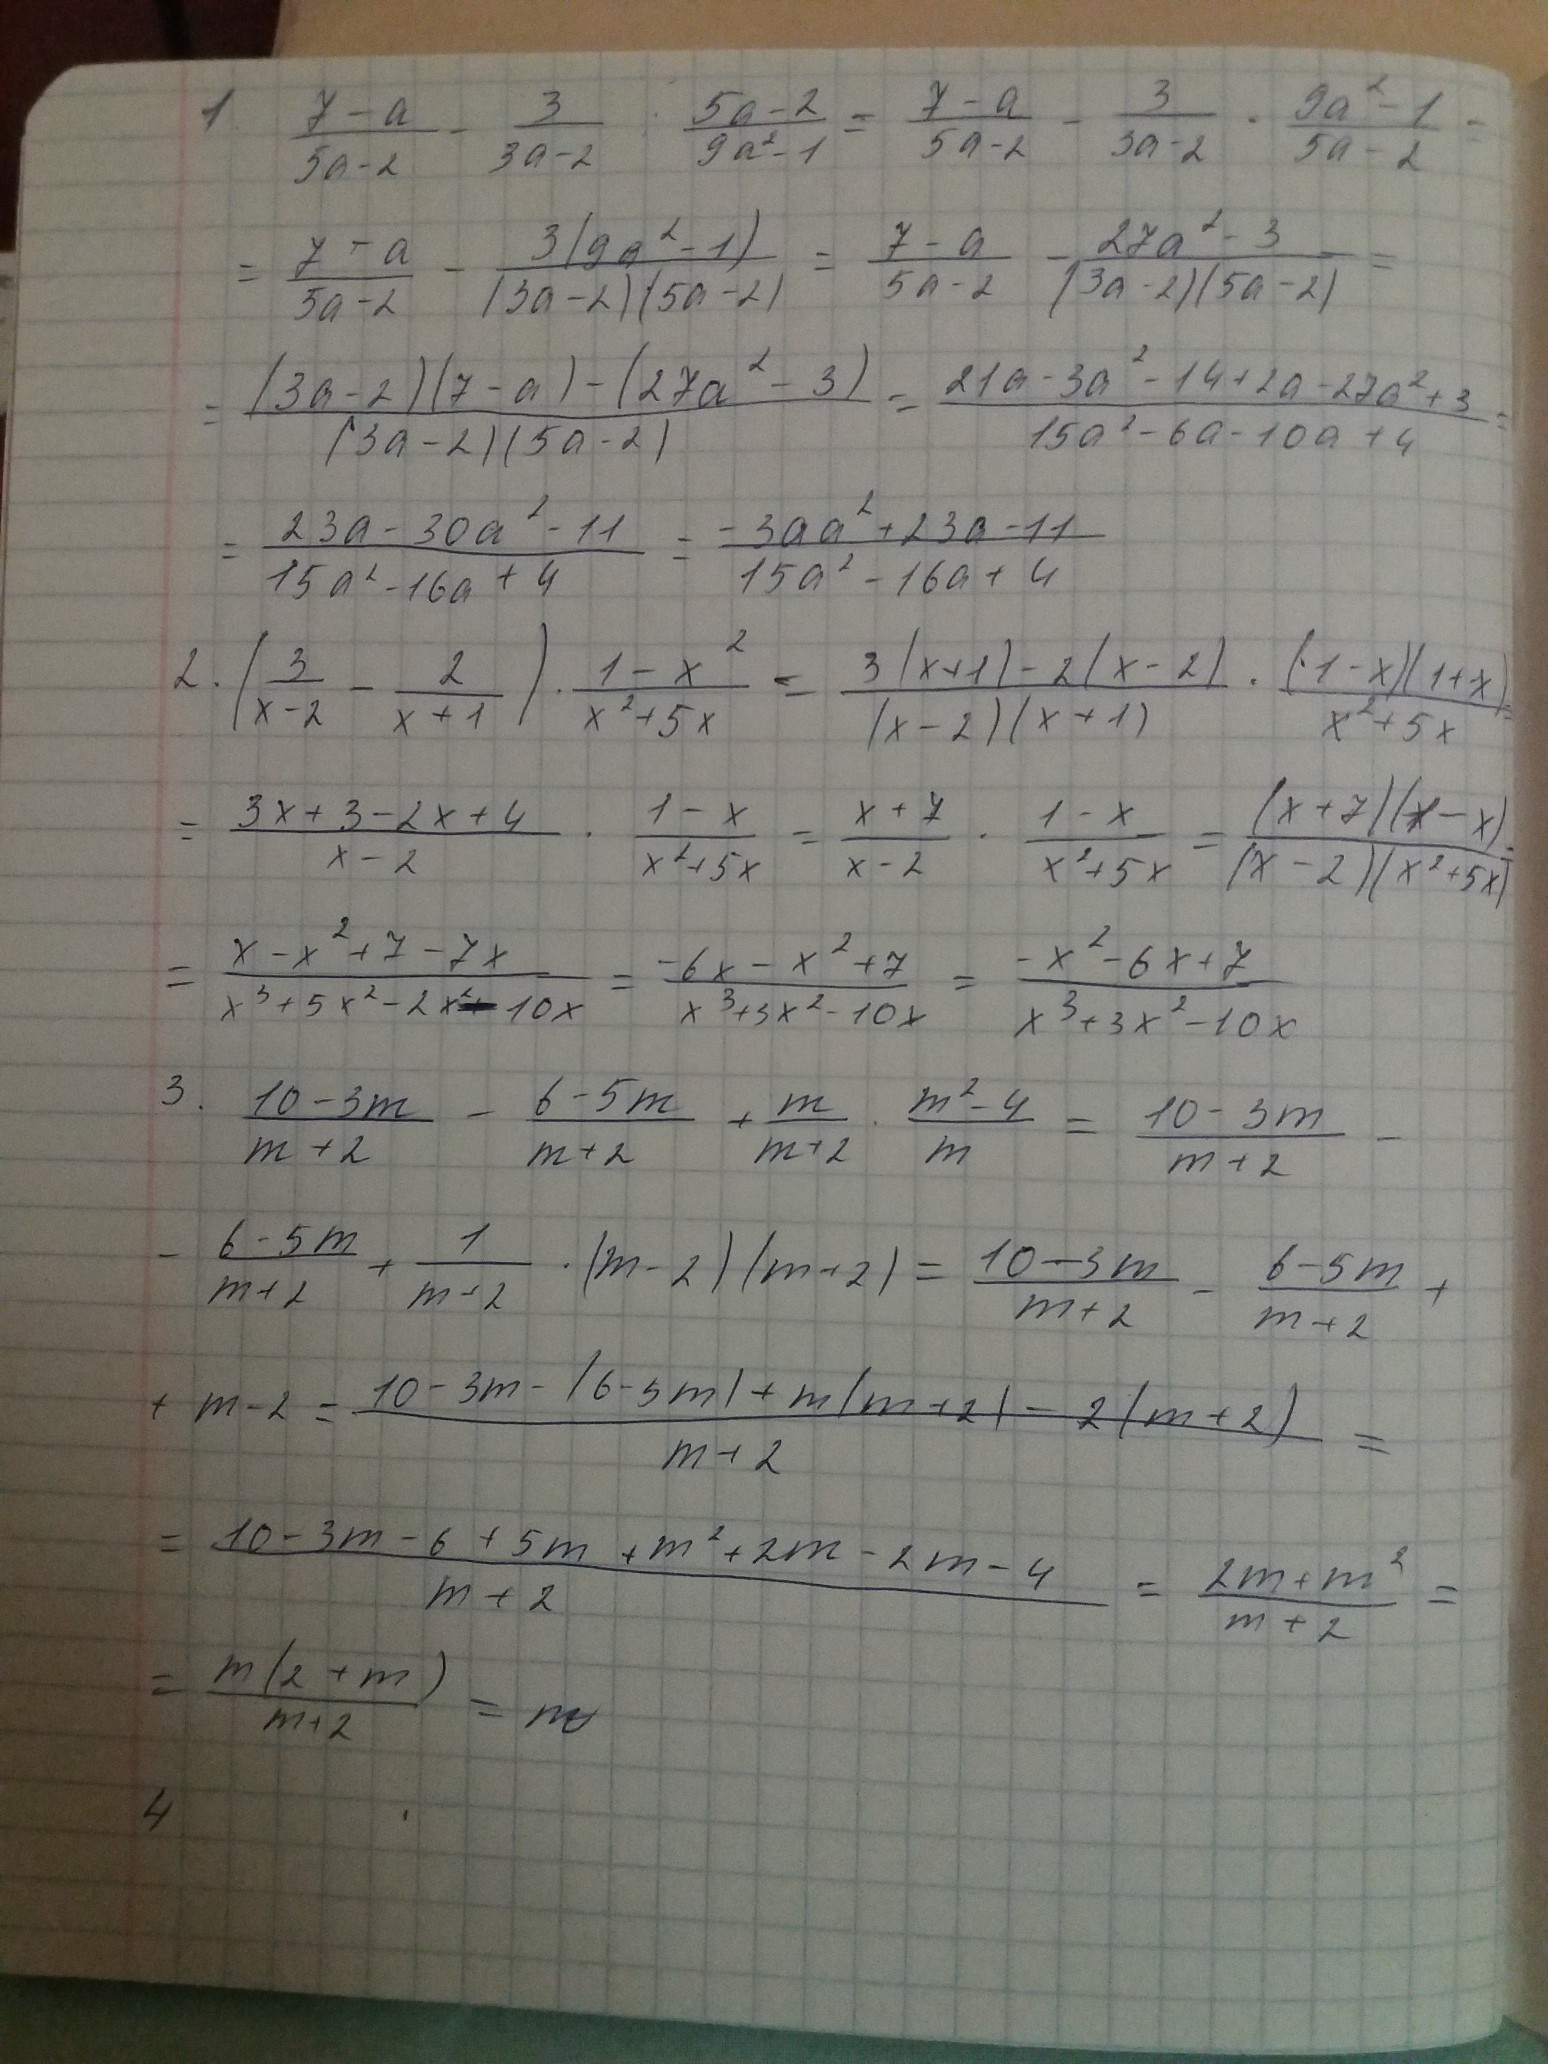 1. (7-a)/(5a-2) - 3/(3a-2) · (5a-2)/(9a²-1) = (7-a)/(5a-2) - 3/(3a-2) · (9a²-1)/(5a-2) =
= (7-a)/(5a-2) - 3(9a²-1)/((3a-2)(5a-2)) = (7-a)/(5a-2) - (27a²-3)/((3a-2)(5a-2)) =
= ((3a-2)(7-a)-(27a²-3))/((3a-2)(5a-2)) = (21a-3a²-14+2a-27a²+3)/(15a²-6a-10a+4) =
= (23a-30a²-11)/(15a²-16a+4) = (-30a²+23a-11)/(15a²-16a+4)
2. (3/(x-2) - 2/(x+1)) · (1-x²)/(x²+5x) = (3(x+1)-2(x-2))/((x-2)(x+1)) · ((1-x)(1+x))/(x²+5x) =
= (3x+3-2x+4)/(x-2) · (1-x)/(x²+5x) = (x+7)/(x-2) · (1-x)/(x²+5x) = ((x+7)(1-x))/((x-2)(x²+5x)) =
= (x-x²+7-7x)/(x³+5x²-2x²-10x) = (-6x-x²+7)/(x³+3x²-10x) = (-x²-6x+7)/(x³+3x²-10x)
3. (10-3m)/(m+2) - (6-5m)/(m+2) + m/(m+2) · (m²-4)/m = (10-3m)/(m+2) -
- (6-5m)/(m+2) + 1/(m+2) · (m-2)(m+2) = (10-3m)/(m+2) - (6-5m)/(m+2) +
+ m-2 = (10-3m-(6-5m)+m(m+2)-2(m+2))/(m+2) =
= (10-3m-6+5m+m²+2m-2m-4)/(m+2) = (2m+m²)/(m+2) =
= m(2+m)/(m+2) = m
4